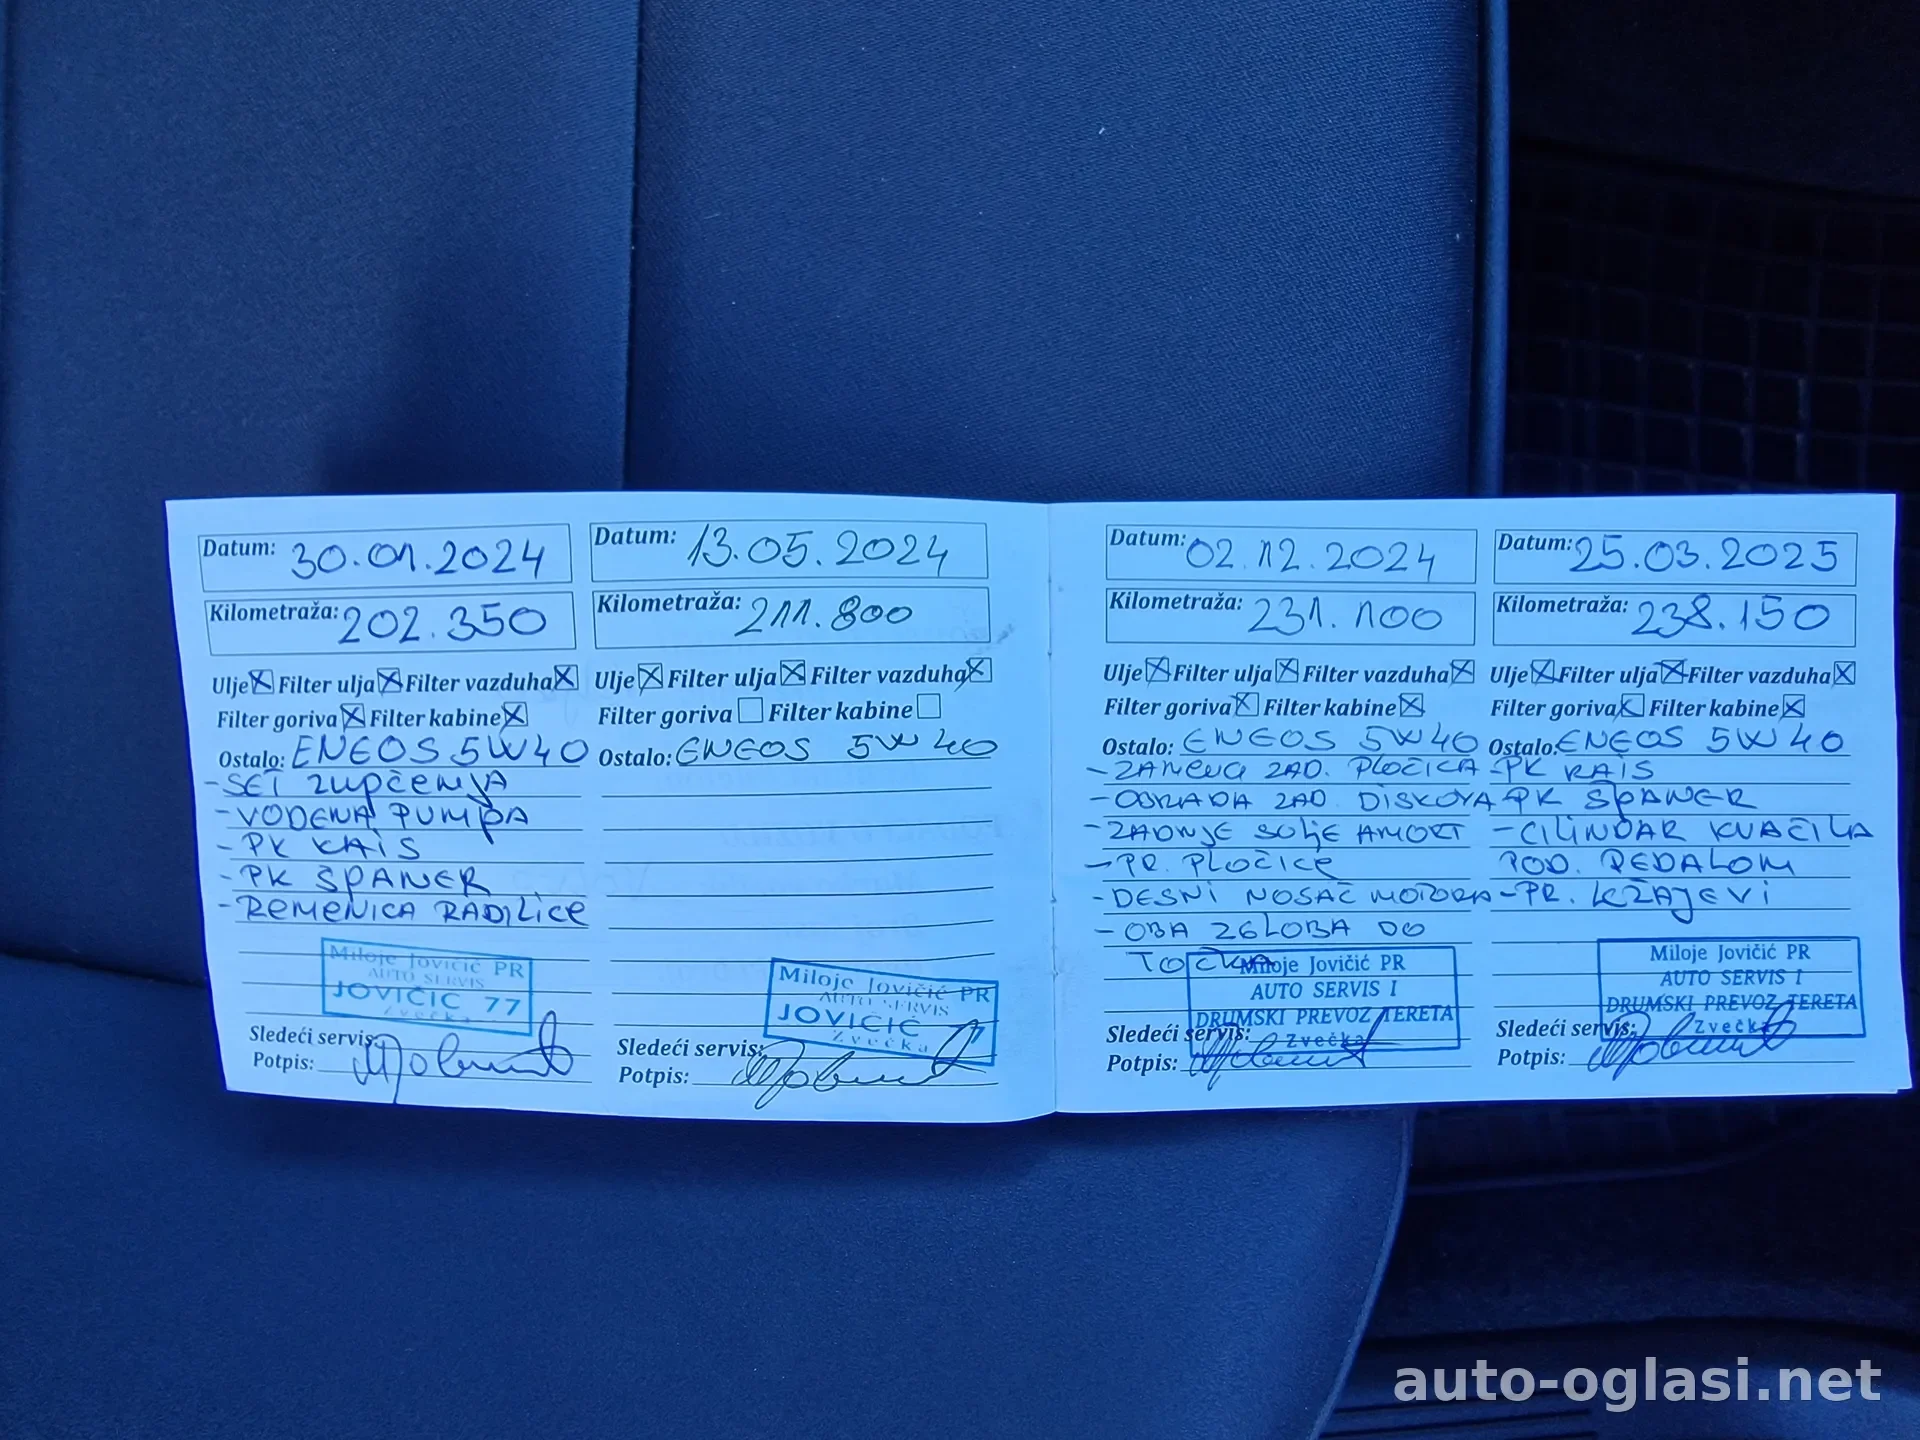 Datum: 30.01.2024
Kilometraža: 202.350
Ulje Filter ulja Filter vazduha
Filter goriva Filter kabine
Ostalo: ENEOS 5W40
-SET zupčenja
-VODENA PUMPA
-PK KAIS
-PK ŠPANER
-REMENICA RADILICE
Miloje Jovičić PR
AUTO SERVIS
JOVIČIĆ 77
Zvečka
Sledeći servis:
Potpis:
Datum: 13.05.2024
Kilometraža: 211.800
Ulje Filter ulja Filter vazduha
Filter goriva Filter kabine
Ostalo: ENEOS 5W40
Miloje Jovičić PR
AUTO SERVIS
JOVIČIĆ 77
Zvečka
Sledeći servis:
Potpis:
Datum: 02.12.2024
Kilometraža: 231.100
Ulje Filter ulja Filter vazduha
Filter goriva Filter kabine
Ostalo: ENEOS 5W40
-ZAMENA ZAD. PLOČICA
-OBRADA ZAD. DISKOVA
-ZADNJE ŠOLJE AMORT
-PR. PLOČICE
-DESNI NOSAČ MOTORA
-OBA ZGLOBA DO
TOČKA
Miloje Jovičić PR
AUTO SERVIS I
DRUMSKI PREVOZ TERETA
Zvečka
Sledeći servis:
Potpis:
Datum: 25.03.2025
Kilometraža: 238.150
Ulje Filter ulja Filter vazduha
Filter goriva Filter kabine
Ostalo: ENEOS 5W40
-PK KAIS
-PK ŠPANER
-CILINDAR KVAČILA
POD. PEDALOM
-PR. KRAJEVI
Miloje Jovičić PR
AUTO SERVIS I
DRUMSKI PREVOZ TERETA
Zvečka
Sledeći servis:
Potpis:
auto-oglasi.net